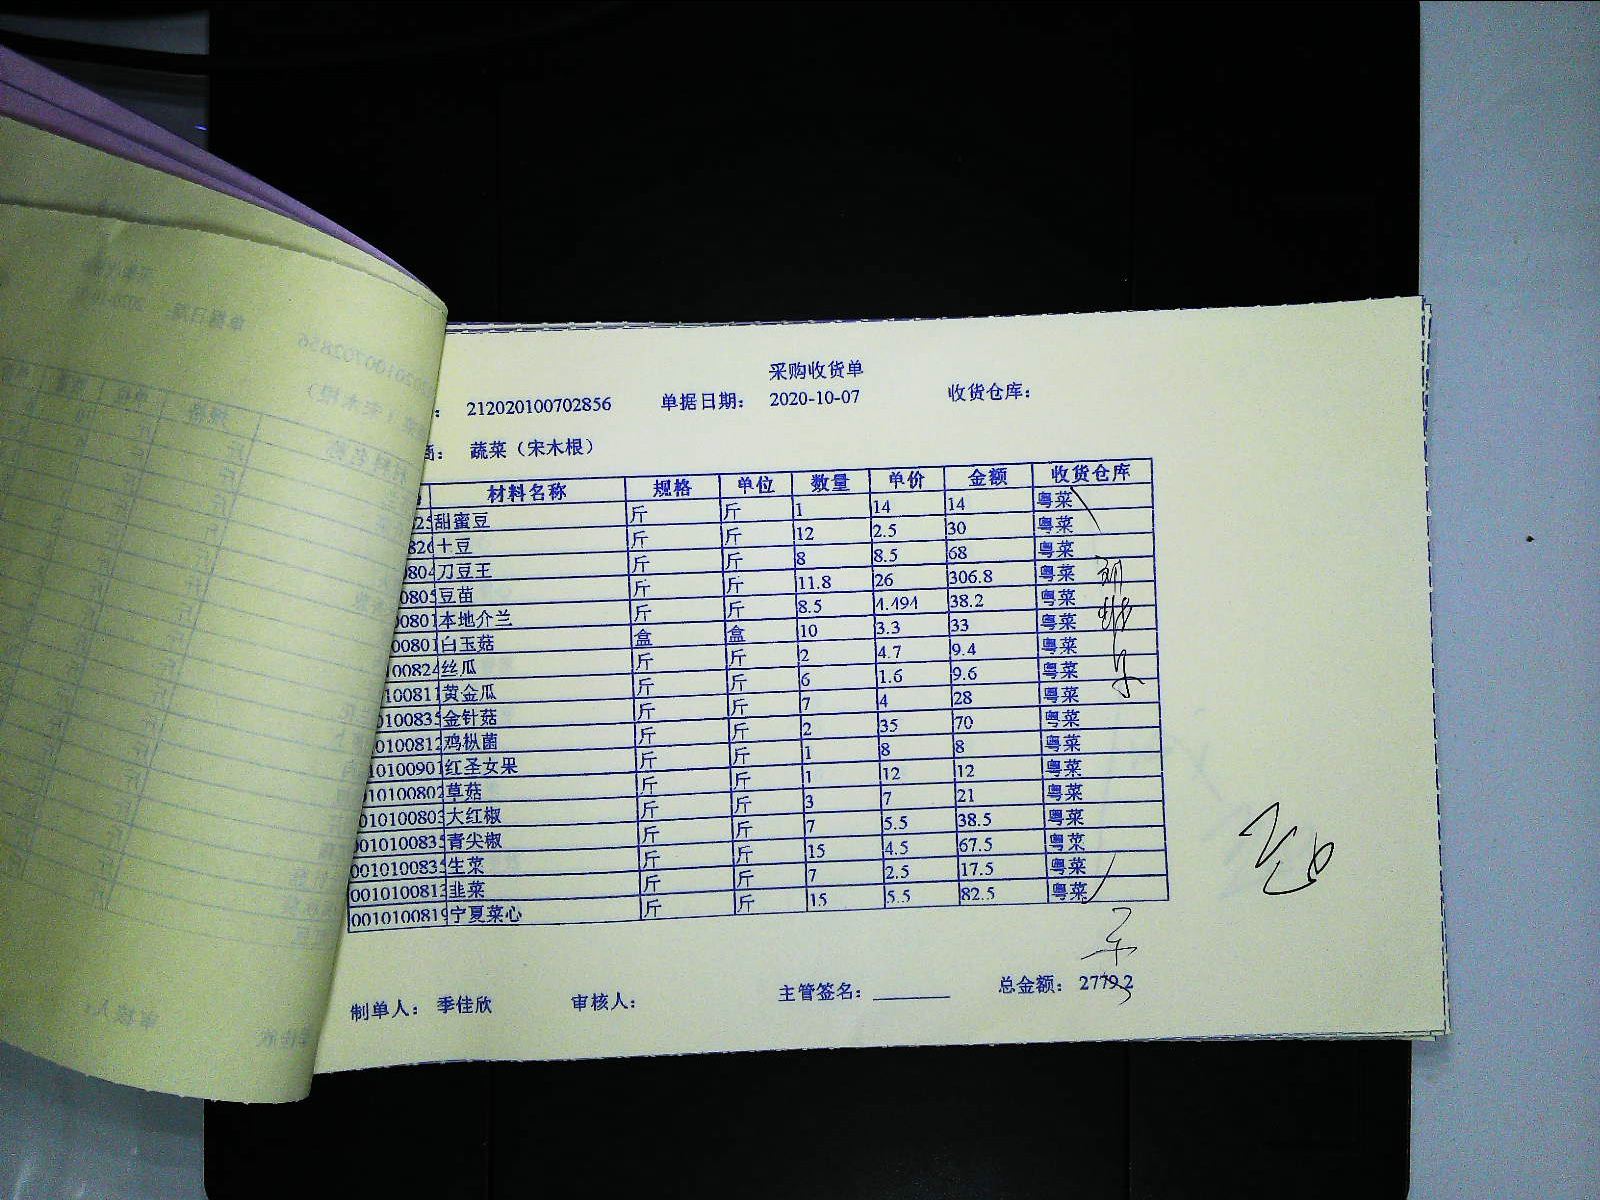 采购收货单
: 212020100702856 单据日期: 2020-10-07 收货仓库:
商: 蔬菜(宋木根)
材料名称 规格 单位 数量 单价 金额 收货仓库
25 甜蜜豆 斤 斤 1 14 14 粤菜
826 土豆 斤 斤 12 2.5 30 粤菜
0804 刀豆王 斤 斤 8 8.5 68 粤菜
0805 豆苗 斤 斤 11.8 26 306.8 粤菜
00801 本地介兰 斤 斤 8.5 4.494 38.2 粤菜
00801 白玉菇 盒 盒 10 3.3 33 粤菜
100824 丝瓜 斤 斤 2 4.7 9.4 粤菜
100811 黄金瓜 斤 斤 6 1.6 9.6 粤菜
0100835 金针菇 斤 斤 7 4 28 粤菜
0100812 鸡枞菌 斤 斤 2 35 70 粤菜
10100901 红圣女果 斤 斤 1 8 8 粤菜
010100802 草菇 斤 斤 1 12 12 粤菜
010100803 大红椒 斤 斤 3 7 21 粤菜
0010100835 青尖椒 斤 斤 7 5.5 38.5 粤菜
0010100835 生菜 斤 斤 15 4.5 67.5 粤菜
0010100813 韭菜 斤 斤 7 2.5 17.5 粤菜
0010100819 宁夏菜心 斤 斤 15 5.5 82.5 粤菜
制单人: 季佳欣 审核人: 主管签名: 总金额: 2779.2